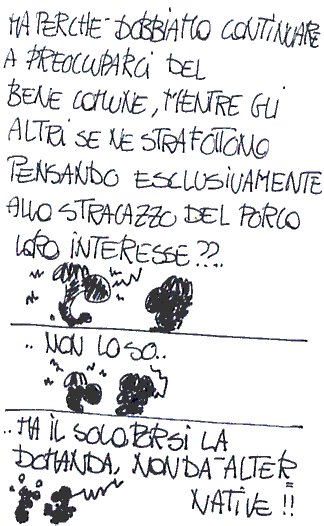 MA PERCHE' DOBBIAMO CONTINUARE
A PREOCCUPARCI DEL
BENE COMUNE, MENTRE GLI
ALTRI SE NE STRAFOTTONO
PENSANDO ESCLUSIVAMENTE
ALLO STRACAZZO DEL PORCO
LORO INTERESSE??..
.. NON LO SO..
..MA IL SOLO PORSI LA
DOMANDA, NON DA' ALTER=
NATIVE!!